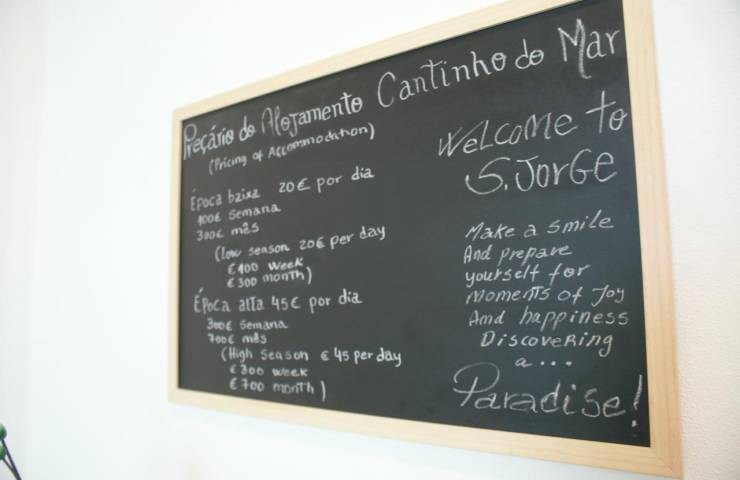 Preçário do Alojamento Cantinho do Mar
(Pricing of Accommodation)
Época baixa 20€ por dia
100€ semana
300€ mês
(low season 20€ per day
€100 week
€300 month)
Época alta 45€ por dia
300€ semana
700€ mês
(High season €45 per day
€300 week
€700 month)
Welcome to
S. Jorge
Make a smile
And prepare
yourself for
moments of Joy
And happiness
Discovering
a...
Paradise!